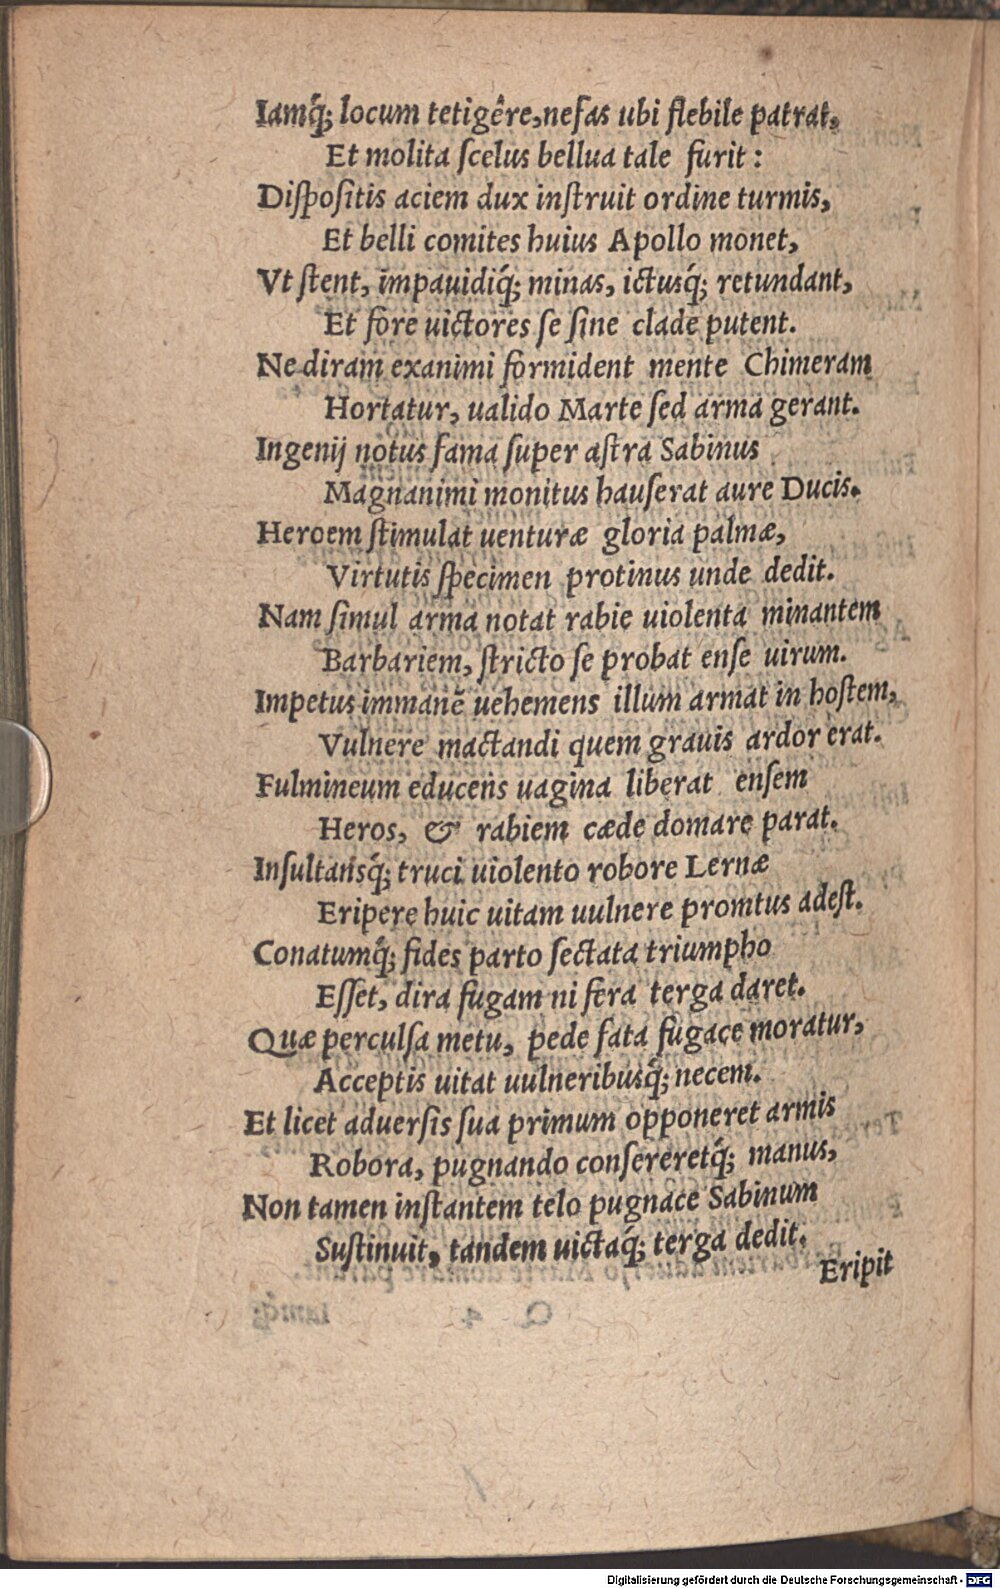 Iamq́; locum tetigêre, nefas ubi flebile patrat,
Et molita ſcelus bellua tale furit :
Diſpoſitis aciem dux inſtruit ordine turmis,
Et belli comites huius Apollo monet,
Vt ſtent, impauidiq́; minas, ictusq́; retundant,
Et fore uictores ſe ſine clade putent.
Ne diram exanimi formident mente Chimeram
Hortatur, ualido Marte ſed arma gerant.
Ingenij notus fama ſuper aſtra Sabinus
Magnanimi monitus hauſerat aure Ducis.
Heroem ſtimulat uenturæ gloria palmæ,
Virtutis ſpecimen protinus unde dedit.
Nam ſimul arma notat rabie uiolenta minantem
Barbariem, ſtricto ſe probat enſe uirum.
Impetus immanẽ uehemens illum armat in hoſtem,
Vulnere mactandi quem grauis ardor erat.
Fulmineum educens uagina liberat enſem
Heros, & rabiem cæde domare parat.
Inſultansq́; truci uiolento robore Lernæ
Eripere huic uitam uulnere promtus adeſt.
Conatumq́; fides parto ſectata triumpho
Eſſet, dira fugam ni fera terga daret.
Quæ perculſa metu, pede fata fugace moratur,
Acceptis uitat uulneribusq́; necem.
Et licet aduerſis ſua primum opponeret armis
Robora, pugnando conſereretq́; manus,
Non tamen inſtantem telo pugnace Sabinum
Suſtinuit, tandem uictaq́; terga dedit.
Eripit
Digitalisierung gefördert durch die Deutsche Forschungsgemeinschaft - DFG